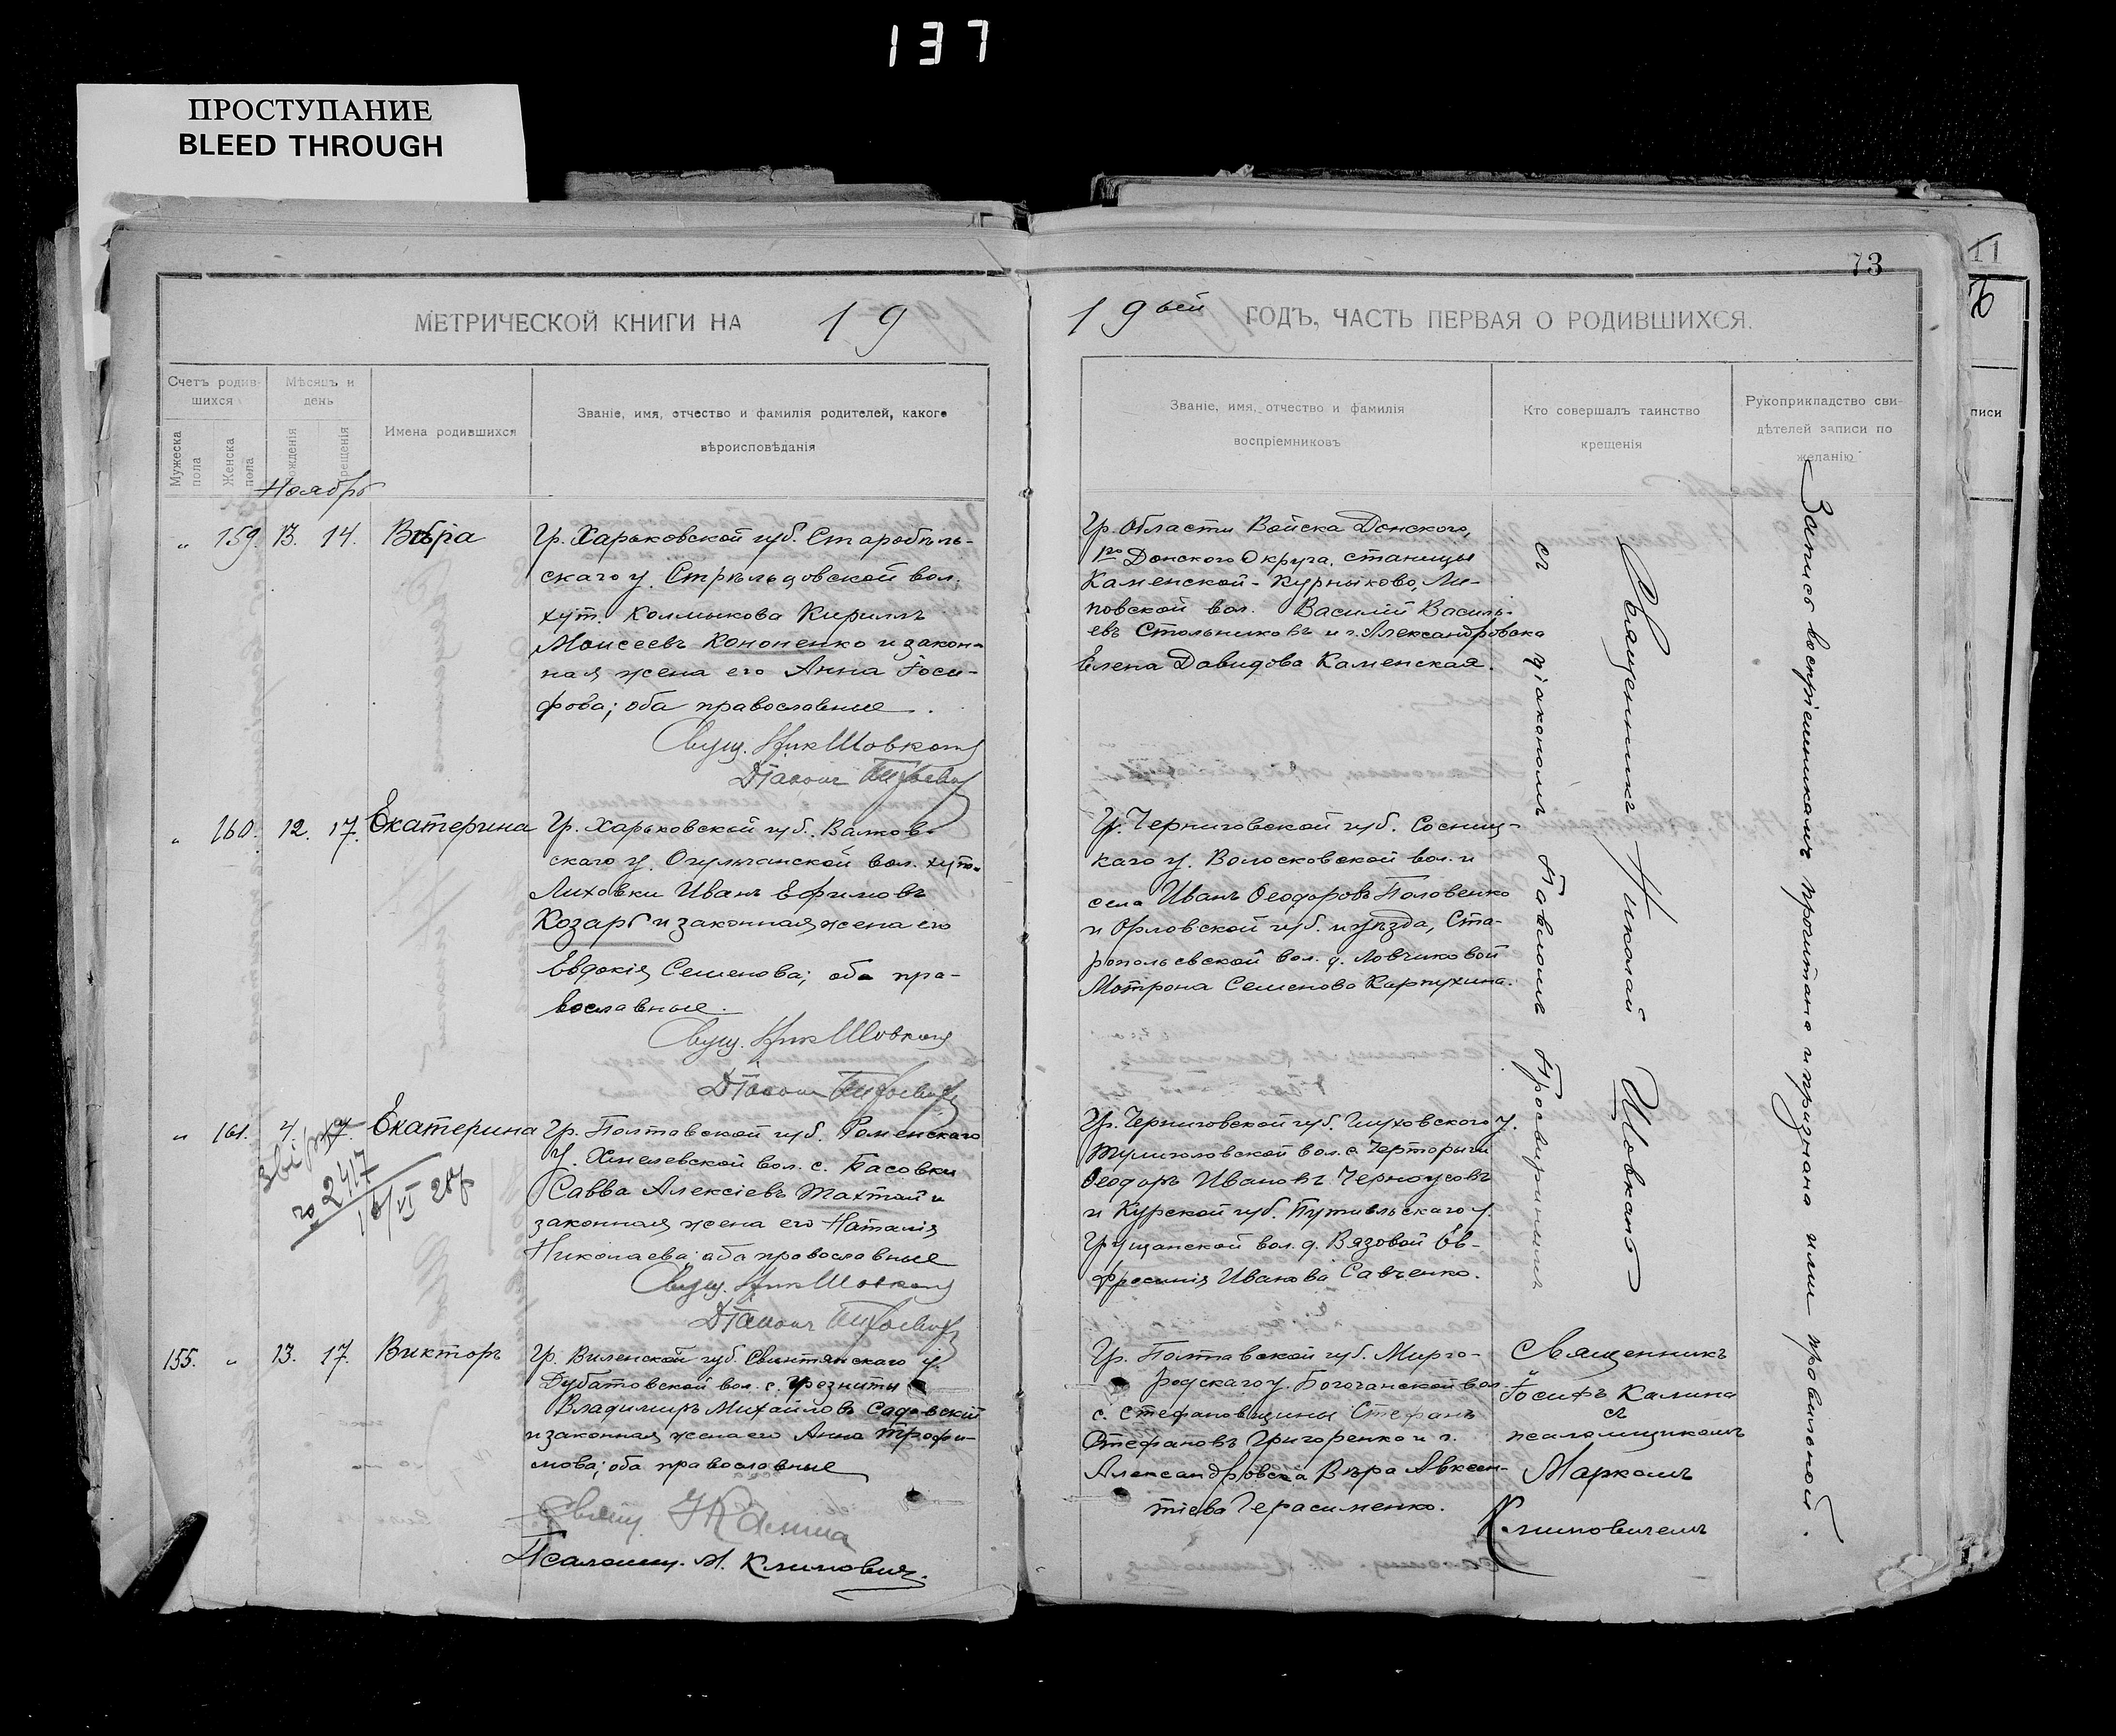 137
ПРОСТУПАНИЕ
BLEED THROUGH
73
11
МЕТРИЧЕСКОЙ КНИГИ НА 19
19ый ГОДЪ, ЧАСТЬ ПЕРВАЯ О РОДИВШИХСЯ.
Счетъ родив-
шихся
Мужеска пола
Женска пола
Мѣсяцъ и
день
рожденія
крещенія
Имена родившихся
Званіе, имя, отчество и фамилія родителей, какого
вѣроисповѣданія
Званіе, имя, отчество и фамилія
воспріемниковъ
Кто совершалъ таинство
крещенія
Рукоприкладство сви-
дѣтелей записи по
желанію
писи
Ноябрь
„ 159. 13. 14. Вѣра
Гр. Харьковской губ. Старобѣль-
скаго у. Стрѣльцовской вол.
хут. Колмыкова Кириллъ
Моисеевъ Кононенко и закон-
ная жена его Анна Іоси-
фова; оба православные.
Свящ. Ник Шовкопл
Діаконъ
Гр. Области Войска Донского,
1го Донского Округа, станицы
Каменской-Курныково, Ли-
повской вол. Василій Василь-
евъ Стольниковъ и г. Александровска
Елена Давидова Каменская.
„ 160. 12. 17. Екатерина
Гр. Харьковской губ. Валков-
скаго у. Огульчанской вол. хут.
Лиховки Иванъ Ефимовъ
Козарь и законная жена его
Евдокія Семенова; оба пра-
вославные.
Свящ. Ник Шовкопл
Діаконъ
Гр. Черниговской губ. Сосниц-
каго у. Волосковской вол. и
села Иванъ Ѳеодоровъ Половенко
и Орловской губ. и уѣзда, Ста-
ропольевской вол. д. Ловчиковой
Мотрона Семенова Карпухина.
„ 161. 4. 17. Екатерина
№ 2417
Гр. Полтавской губ. Роменскаго
у. Хмелевской вол. с. Басовки
Савва Алексіевъ Тахтай и
законная жена его Наталія
Николаева; оба православные
Свящ. Ник Шовкопл
Діаконъ
Гр. Черниговской губ. Глуховского у.
Тулиголовской вол. с. Черторыги
Ѳеодоръ Ивановъ Черноусовъ
и Курской губ. Путивльскаго у.
Грузчанской вол. д. Вязовой Ев-
фросинія Иванова Савченко.
155. „ 13. 17. Викторъ
Гр. Виленской губ. Свинтянскаго у.
Дубатовской вол. с.
Владимиръ Михайловъ Садовскій
и законная жена его Анна Трофи-
мова; оба православные
Свящ. І Калина
Псаломщ. М. Климовичъ.
Гр. Полтавской губ. Мирго-
родскаго у. Богочанской вол.
с. Стефановщины Стефанъ
Стефановъ Григоренко и г.
Александровска Вѣра Авксен-
тіева Герасименко.
Священникъ Николай Шовкопло
съ діакономъ Павломъ
Священникъ
Іосифъ Калина
съ
псаломщикомъ
Маркомъ
Климовичемъ
Запись воспріемникамъ прочитана и признана ими правильной.